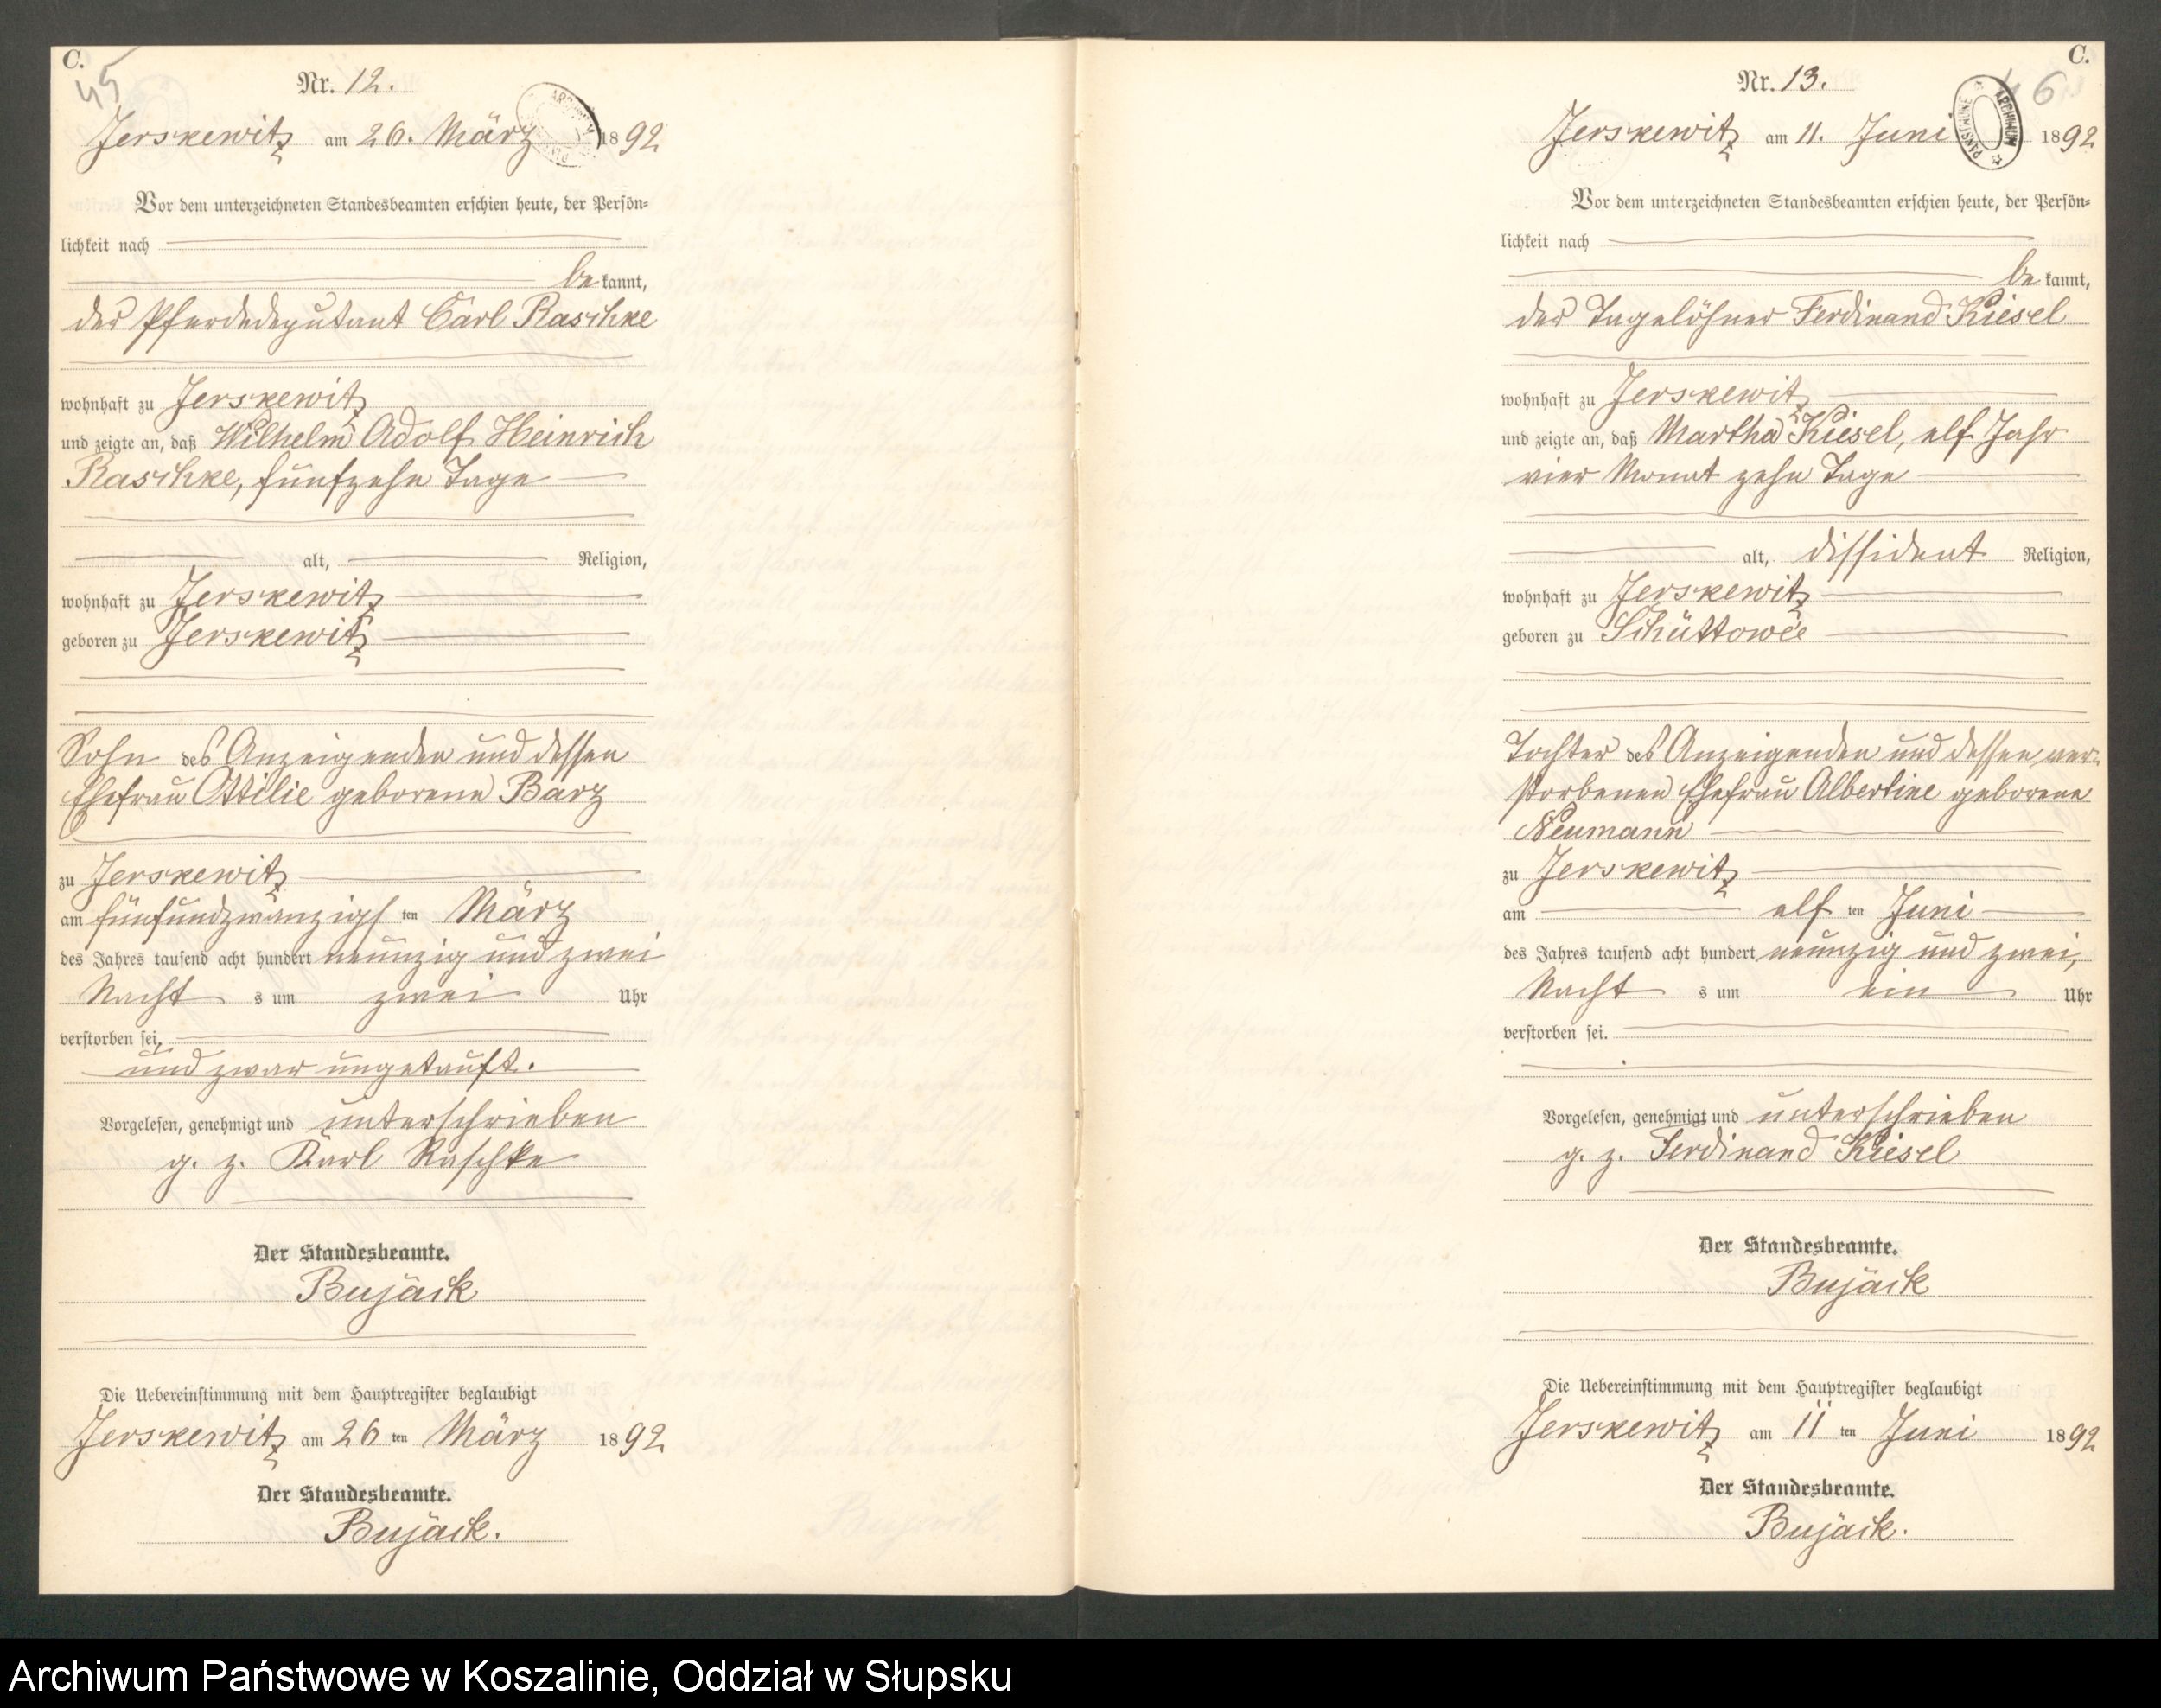 C.
45
Nr. 12.
Jerskewitz am 26. März 1892
Vor dem unterzeichneten Standesbeamten erschien heute, der Persön-
lichkeit nach
bekannt,
der Pferdedeputant Carl Raschke
wohnhaft zu Jerskewitz
und zeigte an, daß Wilhelm Adolf Heinrich
Raschke, fünfzehn Tage
alt, Religion,
wohnhaft zu Jerskewitz
geboren zu Jerskewitz
Sohn des Anzeigenden und dessen
Ehefrau Ottilie geborene Barz
zu Jerskewitz
am fünfundzwanzigsten März
des Jahres tausend acht hundert neunzig und zwei
Nachts um zwei Uhr
verstorben sei,
und zwar ungetauft.
Vorgelesen, genehmigt und unterschrieben
g. z. Karl Raschke
Der Standesbeamte.
Bujack
Die Uebereinstimmung mit dem Hauptregister beglaubigt
Jerskewitz am 26ten März 1892
Der Standesbeamte.
Bujack.
C.
46
Nr. 13.
ARCHIWUM PAŃSTWOWE
Jerskewitz am 11. Juni 1892
Vor dem unterzeichneten Standesbeamten erschien heute, der Persön-
lichkeit nach
bekannt,
der Tagelöhner Ferdinand Kiesel
wohnhaft zu Jerskewitz
und zeigte an, daß Martha Kiesel, elf Jahr
vier Monat zehn Tage
alt, dissident Religion,
wohnhaft zu Jerskewitz
geboren zu Schüttowée
Tochter des Anzeigenden und dessen ver-
storbenen Ehefrau Albertine geborene
Neumann
zu Jerskewitz
am elften Juni
des Jahres tausend acht hundert neunzig und zwei,
Nachts um ein Uhr
verstorben sei.
Vorgelesen, genehmigt und unterschrieben
g. z. Ferdinand Kiesel
Der Standesbeamte.
Bujack
Die Uebereinstimmung mit dem Hauptregister beglaubigt
Jerskewitz am 11ten Juni 1892
Der Standesbeamte.
Bujack.
Archiwum Państwowe w Koszalinie, Oddział w Słupsku